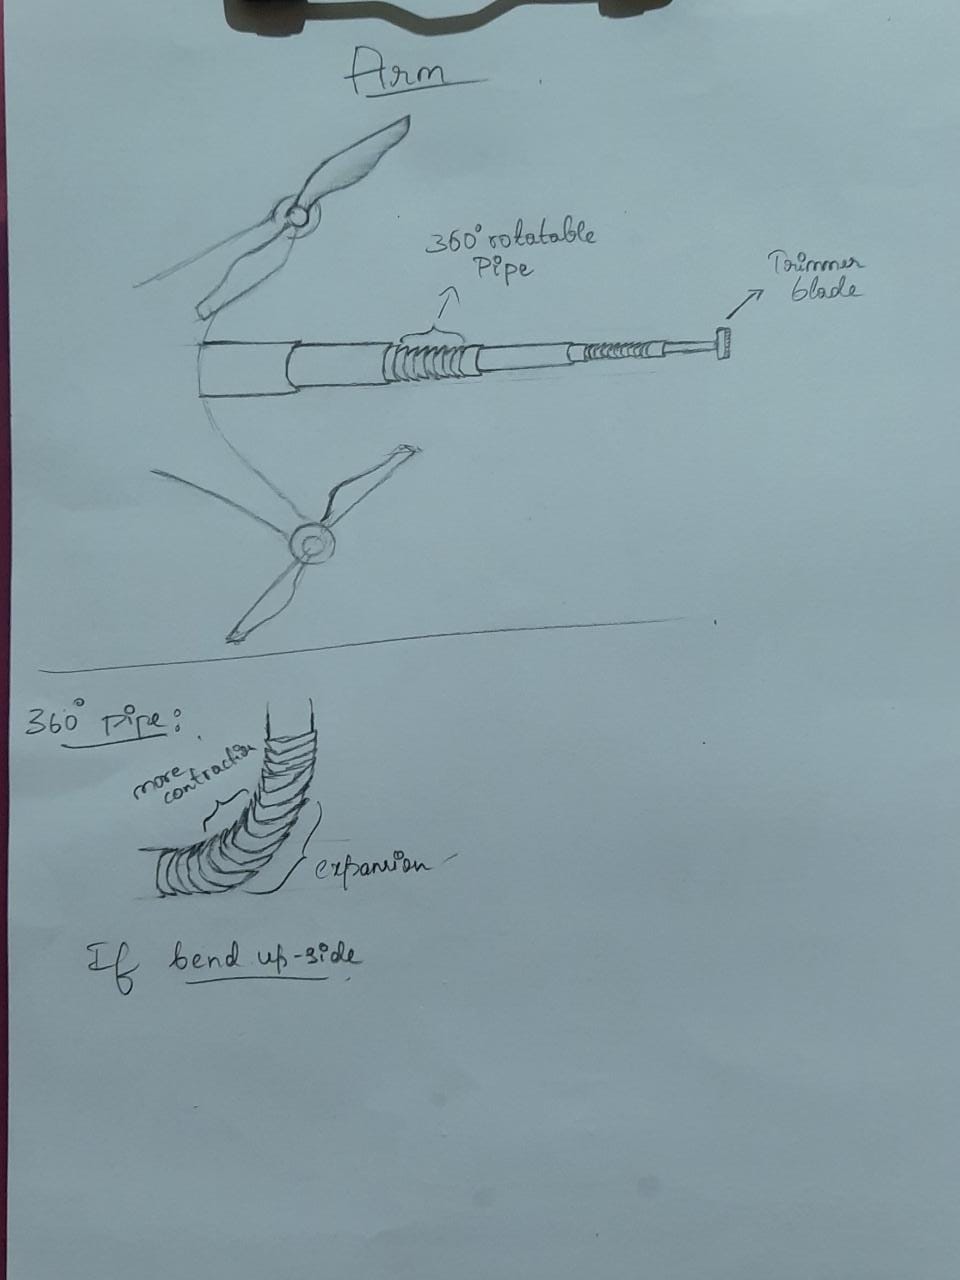 Arm
360° rotatable
Pipe
Trimmer
blade
360° Pipe:
more
contraction
expansion
If bend up-side